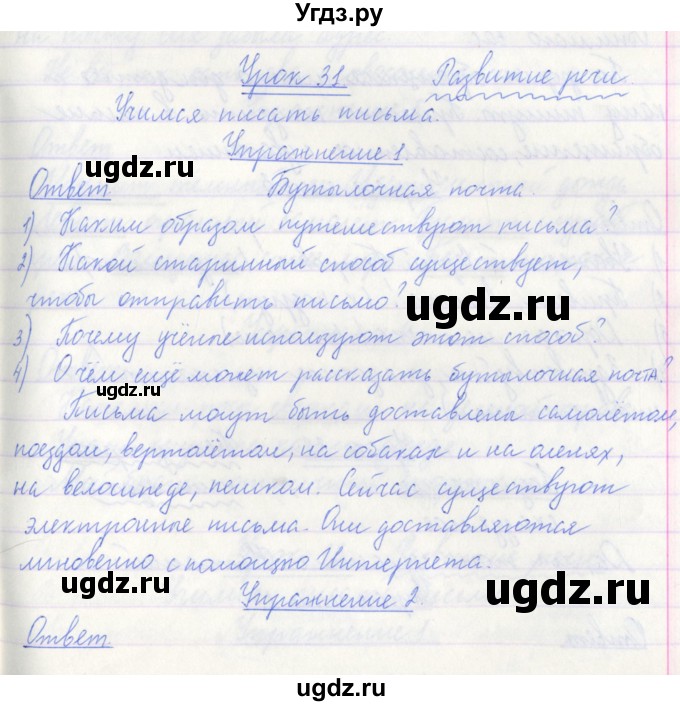 Угдз.ру
Урок 31. Развитие речи.
Учимся писать письма.
Упражнение 1
ugdz.ru
Ответ Бутылочная почта
1) Каким образом путешествуют письма?
2) Какой старинный способ существует,
чтобы отправить письмо?
ugdz.ru
3) Почему учёные используют этот способ?
4) О чём ещё может рассказать бутылочная почта?
ugdz.ru
Письма могут быть доставлены самолётом,
поездом, вертолётом, на собаках и на оленях,
на велосипеде, пешком. Сейчас существуют
электронные письма. Они доставляются
мгновенно с помощью Интернета.
ugdz.ru
ugdz.ru
Упражнение 2.
Ответ
ugdz.ru
ugdz.ru